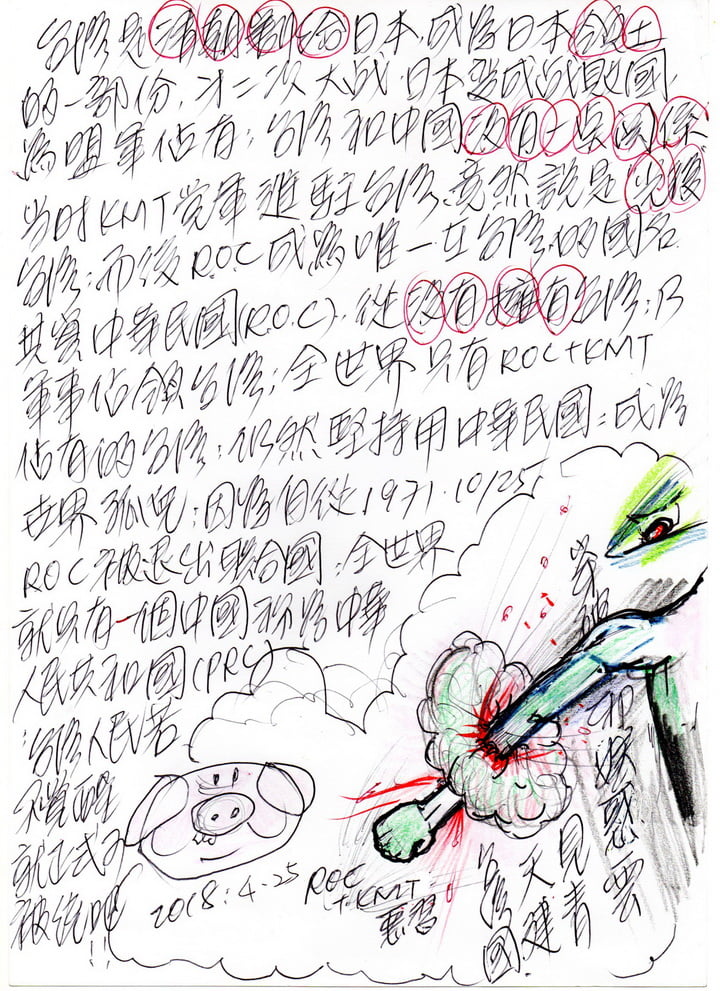 台灣是清朝割給日本.成為日本領土
的一部份.才二次大战.日本变成战敗國.
為盟軍佔有;台灣和中國没有一点関係
当时KMT党軍進駐台灣.竟然說是光復
台灣;而後ROC成為唯一在台灣的國名
其實中華民國(R.O.C).從没有擁有台灣;乃
軍事佔領台灣;全世界只有ROC+KMT
佔有的台灣;仍然堅持用中華民國;成為
世界孤兒;因為自從1971.10/25.
ROC被退出聯合國;全世界
就只有一個中國称為中華
人民共和國(PRC)
台灣人民若
不覺醒
就正式
被统吧!!
2018.4-25
ROC
+KMT
惡習
惑雲
見青
天建
台灣
國